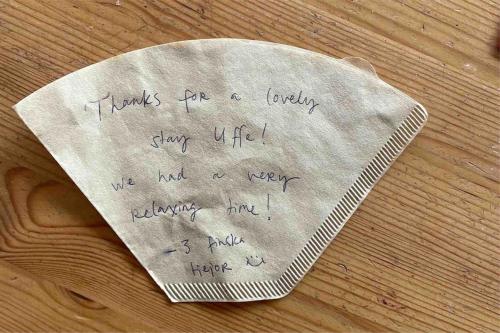 Thanks for a lovely
stay Uffe!
We had a very
relaxing time!
- 3 finska
tjejor ü